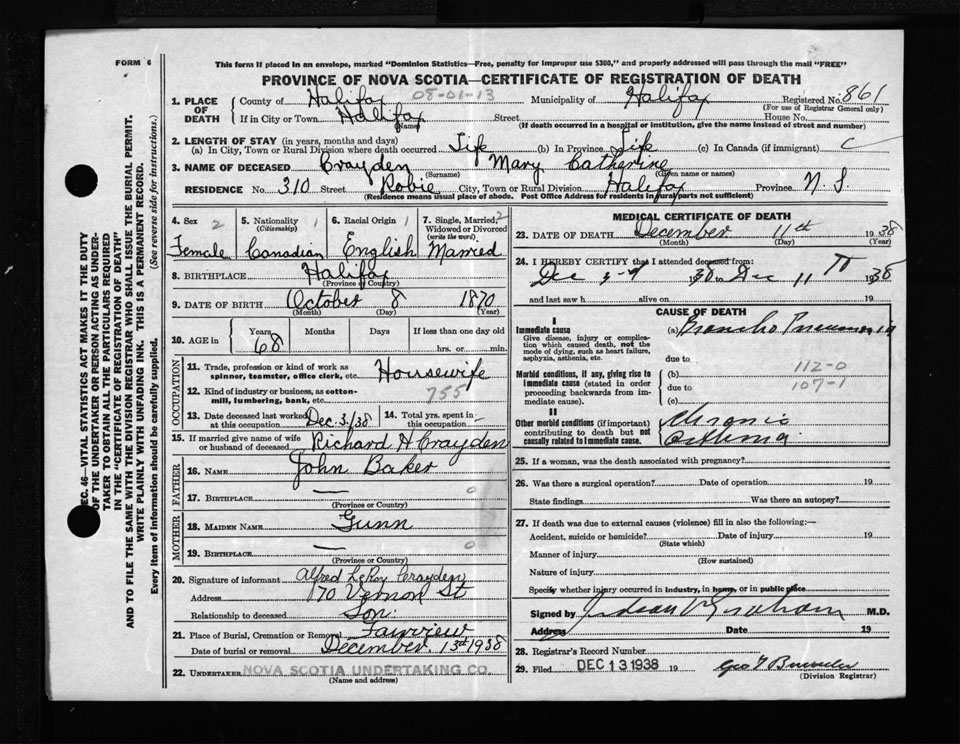 FORM 6
This form if placed in an envelope, marked "Dominion Statistics—Free, penalty for improper use $300," and properly addressed will pass through the mail "FREE"
PROVINCE OF NOVA SCOTIA—CERTIFICATE OF REGISTRATION OF DEATH
1. PLACE OF DEATH
County of Halifax 08-01-13 Municipality of Halifax Registered No. 861
(For use of Registrar General only)
If in City or Town Halifax Street House No.
(Name) (If death occurred in a hospital or institution, give the name instead of street and number)
2. LENGTH OF STAY (in years, months and days)
(a) In City, Town or Rural Division where death occurred Life (b) In Province Life (c) In Canada (if immigrant) C
3. NAME OF DECEASED Crayden Mary Catherine
(Surname) (Given name or names)
RESIDENCE No. 310 Street Robie City, Town or Rural Division Halifax Province N. S.
(Residence means usual place of abode. Post Office Address for residents in rural parts not sufficient)
4. Sex 2 5. Nationality 1 6. Racial Origin 1 7. Single, Married, 2
(Citizenship) Widowed or Divorced
(write the word)
Female Canadian English Married
8. BIRTHPLACE Halifax
(Province or Country)
9. DATE OF BIRTH October 8 1870
(Month) (Day) (Year)
10. AGE in Years Months Days If less than one day old
68 hrs. or min.
OCCUPATION
11. Trade, profession or kind of work as
spinner, teamster, office clerk, etc. Housewife
12. Kind of industry or business, as cotton-
mill, lumbering, bank, etc. 755
13. Date deceased last worked at this occupation Dec. 3/38 14. Total yrs. spent in this occupation
15. If married give name of wife
or husband of deceased Richard H Crayden
FATHER
16. NAME John Baker
17. BIRTHPLACE — 0
(Province or Country)
MOTHER
18. MAIDEN NAME Gunn
19. BIRTHPLACE — 0
(Province or Country)
20. Signature of informant Alfred LeRoy Crayden
Address 170 Vernon St
Relationship to deceased Son.
21. Place of Burial, Cremation or Removal Fairview
Date of burial or removal December 13th 1938
22. UNDERTAKER NOVA SCOTIA UNDERTAKING CO.
(Name and address)
MEDICAL CERTIFICATE OF DEATH
23. DATE OF DEATH December 11th 1938
(Month) (Day) (Year)
24. I HEREBY CERTIFY that I attended deceased from:
Dec 1938 to Dec 11 th 1938
and last saw h alive on 19
CAUSE OF DEATH
I
Immediate cause (a) Broncho Pneumonia
Give disease, injury or complica-
tion which caused death, not the
mode of dying, such as heart failure,
asphyxia, asthenia, etc. due to
112-0
Morbid conditions, if any, giving rise to (b)
immediate cause (stated in order due to 107-1
proceeding backwards from im-
mediate cause). (c)
II
Other morbid conditions (if important) Chronic
contributing to death but not
causally related to immediate cause. Asthma
25. If a woman, was the death associated with pregnancy?
26. Was there a surgical operation? Date of operation 19
State findings Was there an autopsy?
27. If death was due to external causes (violence) fill in also the following:—
Accident, suicide or homicide? Date of injury 19
(State which)
Manner of injury
(How sustained)
Nature of injury
Specify whether injury occurred in industry, in home, or in public place
Signed by Graham M.D.
Address Date 19
28. Registrar's Record Number
29. Filed DEC 13 1938 19
(Division Registrar)
SEC. 46—VITAL STATISTICS ACT MAKES IT THE DUTY
OF THE UNDERTAKER OR PERSON ACTING AS UNDER-
TAKER TO OBTAIN ALL THE PARTICULARS REQUIRED
IN THE "CERTIFICATE OF REGISTRATION OF DEATH"
AND TO FILE THE SAME WITH THE DIVISION REGISTRAR WHO SHALL ISSUE THE BURIAL PERMIT.
WRITE PLAINLY WITH UNFADING INK. THIS IS A PERMANENT RECORD.
Every item of Information should be carefully supplied. (See reverse side for instructions.)